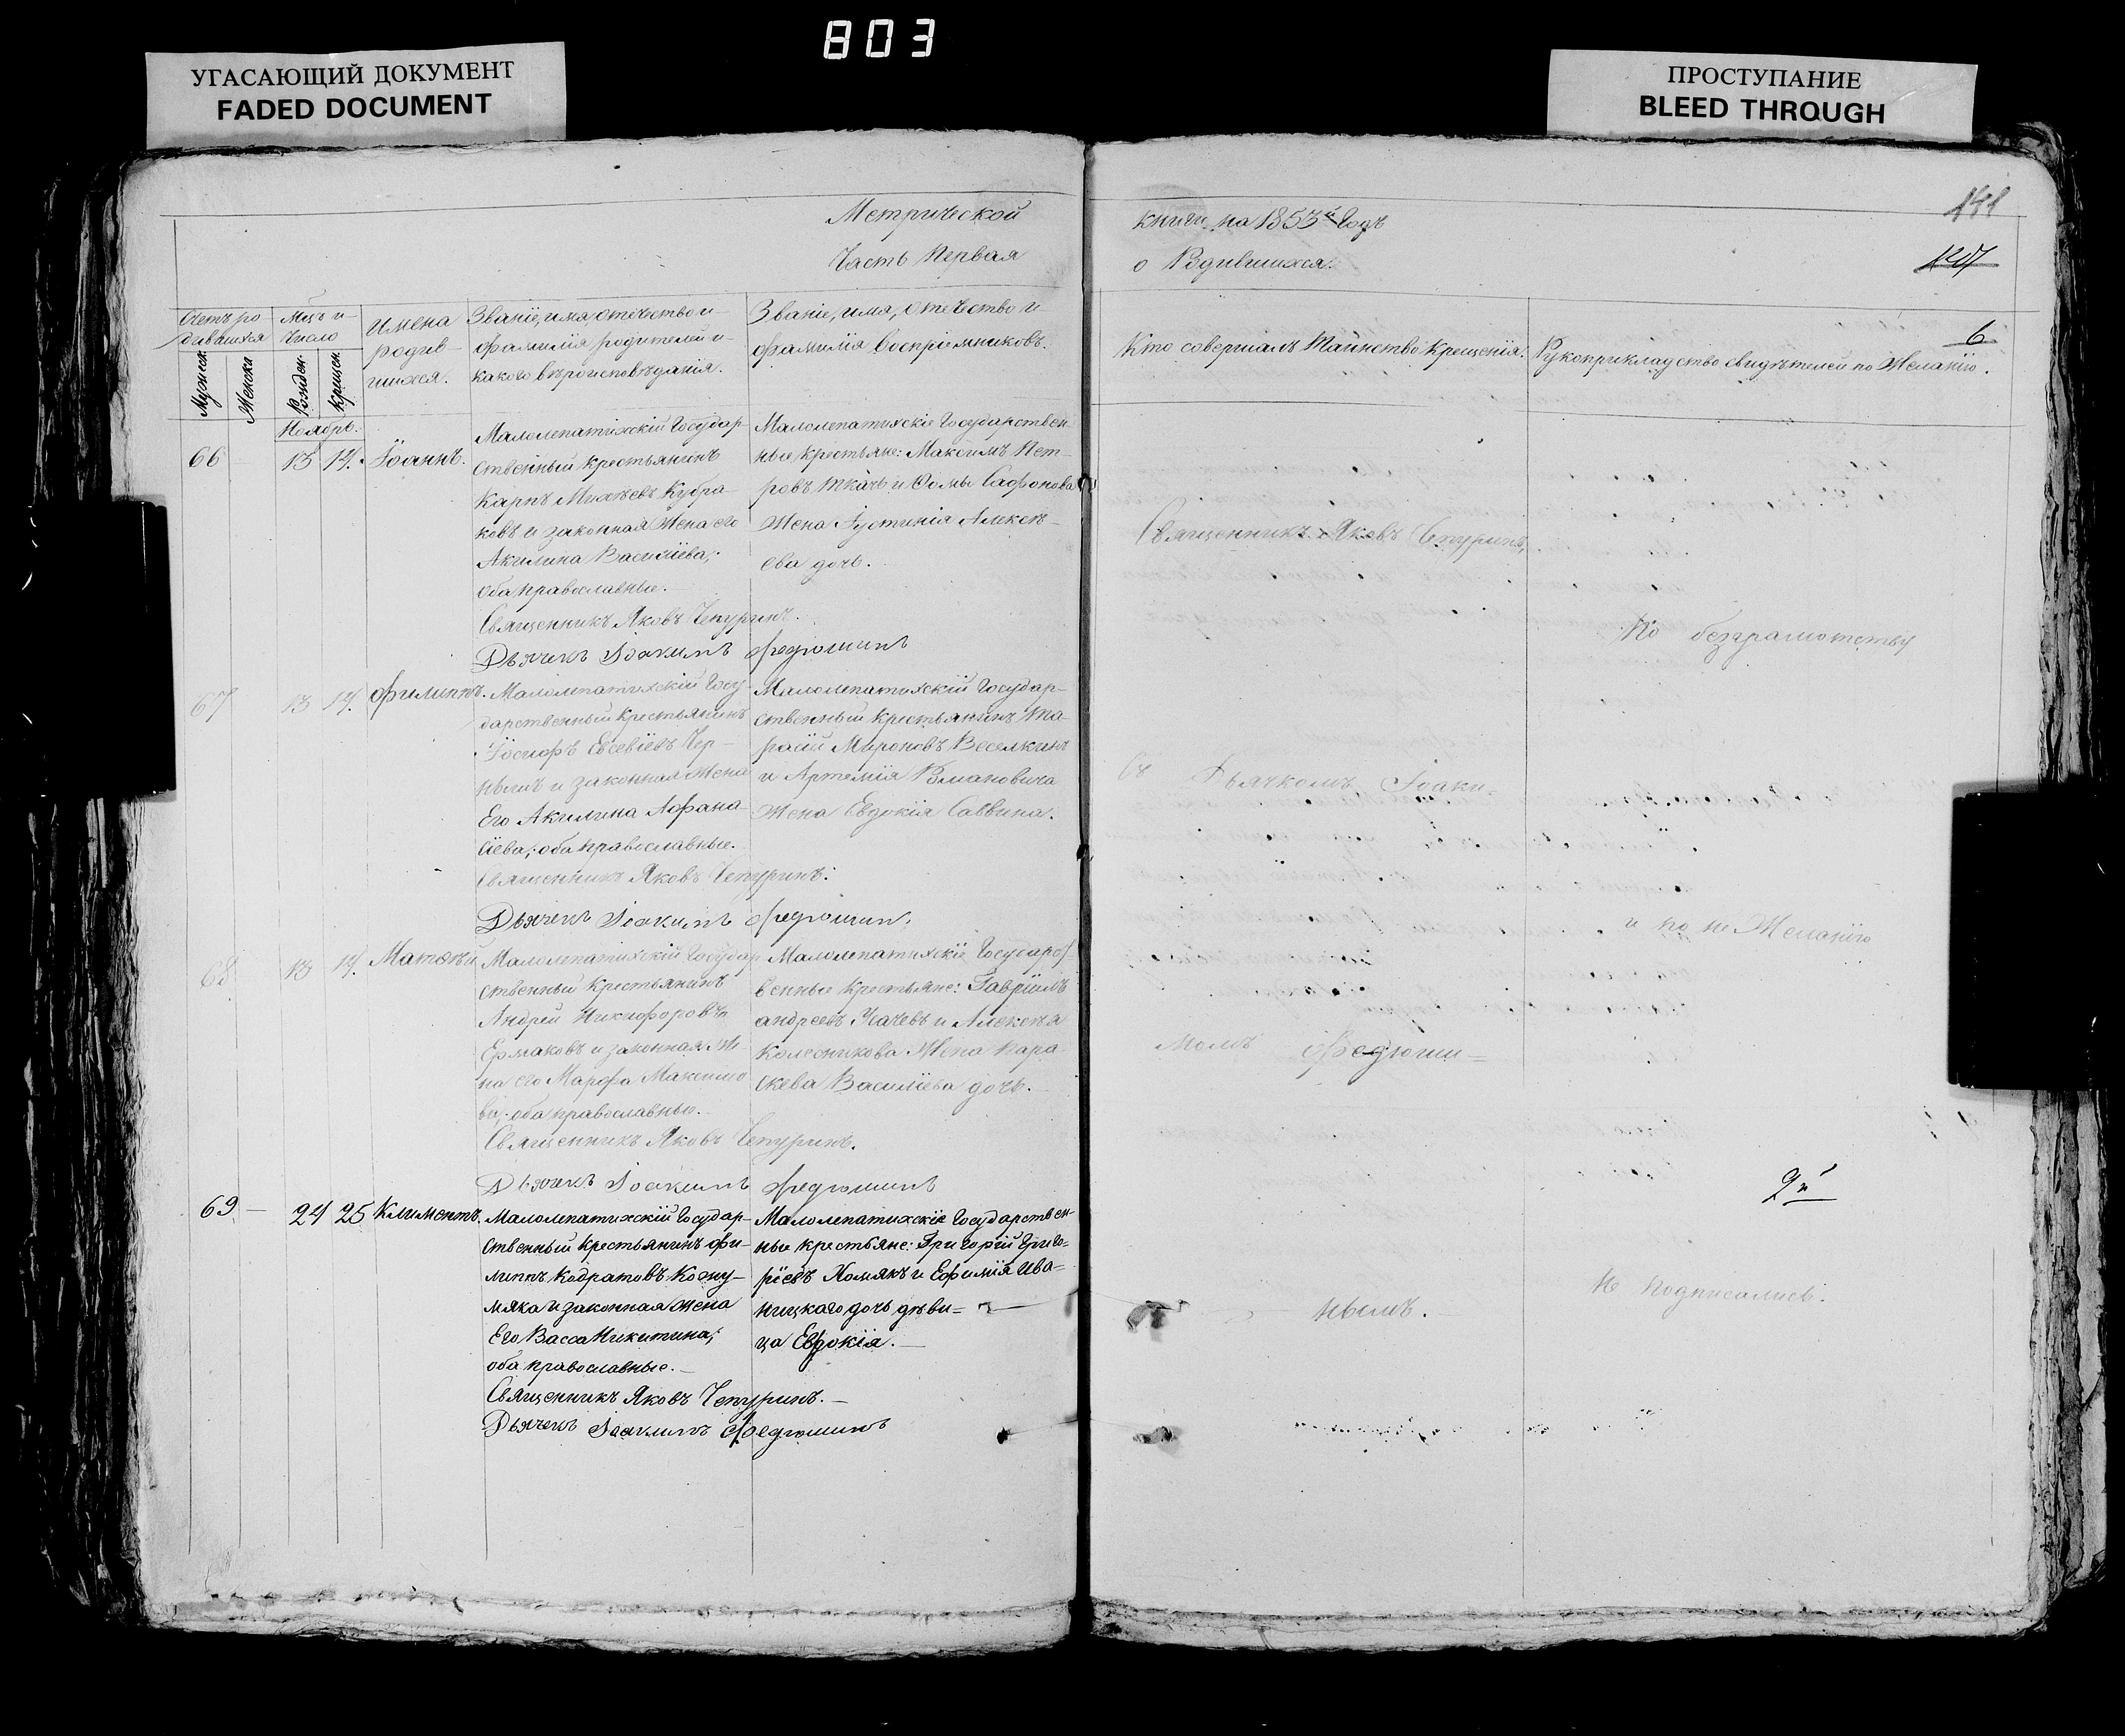 803
УГАСАЮЩИЙ ДОКУМЕНТ
FADED DOCUMENT
ПРОСТУПАНИЕ
BLEED THROUGH
Метрической
Часть Первая
книги на 1853й Годъ
о Родившихся.
6
Счетъ ро
дившихся
Мужеск.
Женска
Мцъ и
Число
Рожден.
Крищен.
имена
родив-
шихся.
Званіе, имя, отечество и
фамилія родителей и
какого вѣроисповѣданія.
Званіе, имя, отечество и
фамилія Воспріемниковъ.
Кто совершалъ Таинство Крещенія.
Рукоприкладство свидѣтелей по Желанію.
Ноябрь.
66
13 14.
Іоаннъ.
Малолепатихскій Государ-
ственный крестьянинъ
Карпъ Михѣевъ Кубра-
ковъ и законная Жена его
Акилина Василіева;
оба православные.
Священникъ Яковъ Чепуринъ.
Дьячекъ Іоакимъ Федюшинъ
Малолепатихскіе Государствен-
ные крестьяне: Максимъ Пет-
ровъ Ткачь и Ѳомы Сафонова
Жена Іустинія Алексѣ-
ева дочь.
67
13 14.
Филиппъ.
Малолепатихскій Госу-
дарственный крестьянинъ
Іосифъ Евсевіевъ Чер-
ныш и законная Жена
Его Акилина Афана-
сіева; оба православные.
Священникъ Яковъ Чепуринъ.
Дьячекъ Іоакимъ Федюшинъ.
Малолепатихскій Государ-
ственный крестьянинъ Та-
расій Мироновъ Веселкинъ
и Артемія Романовича
Жена Евдокія Саввина.
68
13 14.
Матѳѣй
Малолепатихскій Государ
ственный крестьянинъ
Андрей Никифоровъ
Ермаковъ и законная Же-
на его Марфа Максимо
ва; оба православные.
Священникъ Яковъ Чепуринъ.
Дьячекъ Іоакимъ Федюшинъ
Малолепатихскіе Государст-
венные крестьяне: Гавріилъ
Андреевъ Усачевъ и Алексѣя
Колесникова Жена Пара-
скева Василіева дочь.
69 —
24 25
Климентъ.
Малолепатихскій Государ-
ственный крестьянинъ Фи-
липпъ Кодратовъ Косну-
мяка и законная Жена
Его Васса Никитина;
оба православные. —
Священникъ Яковъ Чепуринъ. —
Дьячекъ Іоакимъ Федюшинъ
Малолепатихскіе Государствен-
ные крестьяне: Григорій Григо=
ріевъ Хомякъ и Ефимія Ива=
ницкаго дочь дѣви=
ца Евдокія. —
Священникъ Яковъ Чепуринъ,
съ Дьячкомъ Іоаки-
момъ Федюши=
нымъ. —
По безграмотству
и по не Желанію
не подписались.